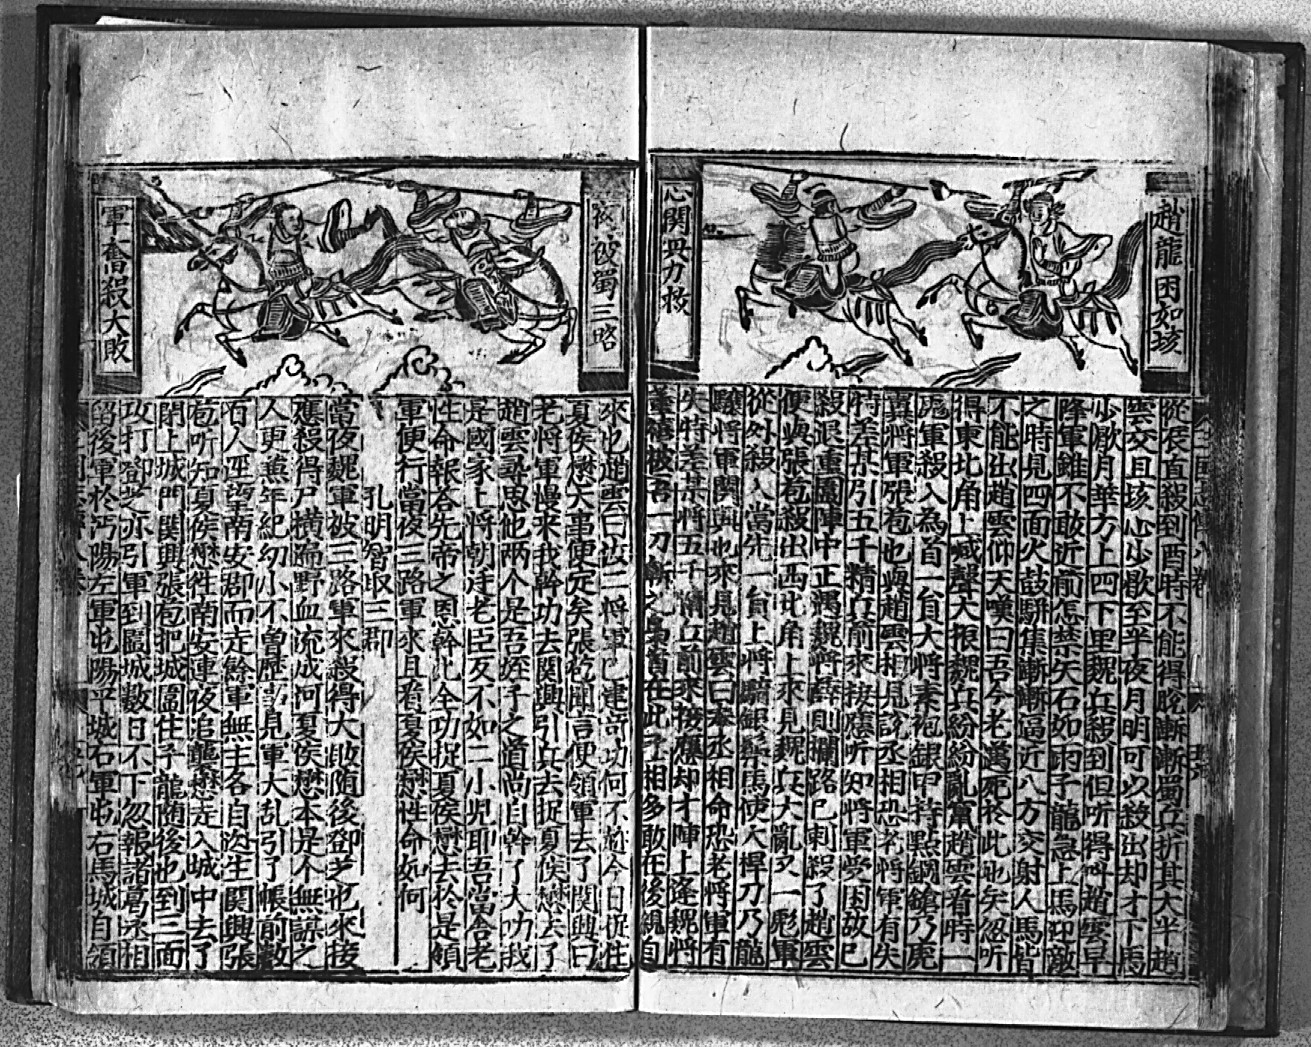 趙龍困如垓
心關興力救
從辰直殺到酉時不能得脫漸漸蜀兵折其大半趙
雲交且垓心少歇至半夜月明可以殺出却才下馬
少歇月華方上四下里魏兵殺到但听得叫趙雲早
降軍雖不敢近前怎禁矢石如雨子龍急上馬迎敵
之時見四面火鼓駢集漸漸逼近八方交射人馬皆
不能出趙雲仰天嘆曰吾今老萬死於此地矣忽听
得東北角上喊聲大振魏兵紛紛亂竄趙雲看時一
彪軍殺入為首一員大將素袍銀甲持點鋼鎗乃虎
翼將軍張苞也與趙雲相見說丞相恐老將軍有失
特差某引五千精兵前來接應听知將軍受困故已
殺退重圍陣中正遇魏將薛則攔路已刺殺了趙雲
便與張苞殺出西北角上來見魏兵大亂又一彪軍
從外殺入當先一員上將騎銀鬃馬使大桿刀乃龍
驤將軍關興也來見趙雲曰奉丞相命恐老將軍有
失特差某將五千精兵前來接應却才陣上逢魏將
董禧被吾一刀斬之梟首在此丞相多敢在後親自
夜被蜀三路
軍奮殺大敗
來也趙雲曰汝二將軍已建奇功何不趁今日捉住
夏侯懋大事便定矣張苞聞言便領軍去了關興曰
老將軍慢來我幹功去關興引兵去捉夏侯懋去了
趙雲尋思他兩个是吾姪子之道尚自幹了大功我
是國家上將朝廷老臣反不如二小兒耶吾當舍老
性命報答先帝之恩幹此全功捉夏侯懋去於是領
軍便行當夜三路軍來且看夏侯懋性命如何
孔明智取三郡
當夜魏軍被三路軍來殺得大敗随後鄧芝也來接
應殺得尸橫遍野血流成河夏侯懋本是个無謀之
人更兼年紀幼小不曾歷 見軍大乱引了帳前數
百人逕望南安郡而走餘軍無主各自迯生關興張
苞听知夏侯懋往南安連夜追襲懋走入城中去了
閉上城門關興張苞把城圍住子龍随後也到三面
攻打鄧芝亦引軍到圍城數日不下忽報諸葛丞相
留後軍於沔陽左軍屯陽平城右軍屯石馬城自領